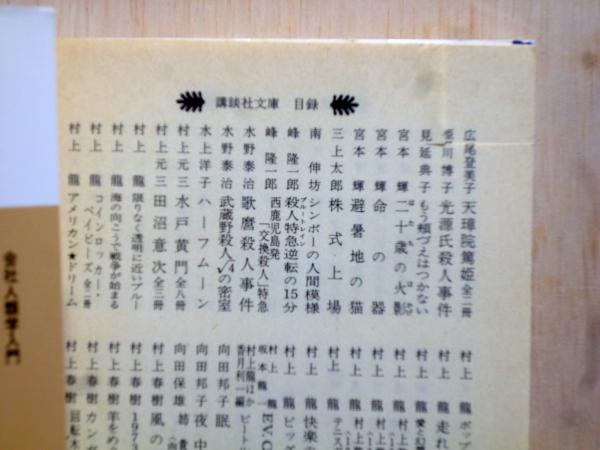 講談社文庫 目録
広尾登美子 天璋院篤姫 全二冊
皆川博子 光源氏殺人事件
見延典子 もう頬づえはつかない
宮本輝 二十歳の火影
宮本輝 命の器
宮本輝 避暑地の猫
三上太郎 株式上場
南伸坊 シンボーの人間模様
峰隆一郎 殺人特急逆転の15分
峰隆一郎 西鹿児島発「交換殺人」特急
水野泰治 歌麿殺人事件
水野泰治 武蔵野殺人√4の密室
水上洋子 ハーフムーン
村上元三 水戸黄門 全八冊
村上元三 田沼意次 全三冊
村上龍 限りなく透明に近いブルー
村上龍 海の向こうで戦争が始まる
村上龍 コインロッカー・ベイビーズ 全二冊
村上龍 アメリカン★ドリーム
村上龍 ポップ
村上龍 走れ
村上龍 愛と幻
村上龍
村上龍
村上龍 テニス
村上龍 快楽の
村上龍 ビッグ
村上龍 坂本龍一 EV.C
村上龍ほか 香月利一編 ビートル
向田邦子 眠
向田邦子 夜中
向田保雄 姉貴
村上春樹 風の
村上春樹 1973
村上春樹 羊をめ
村上春樹 カンガ
村上春樹 回転木
会社人類学入門